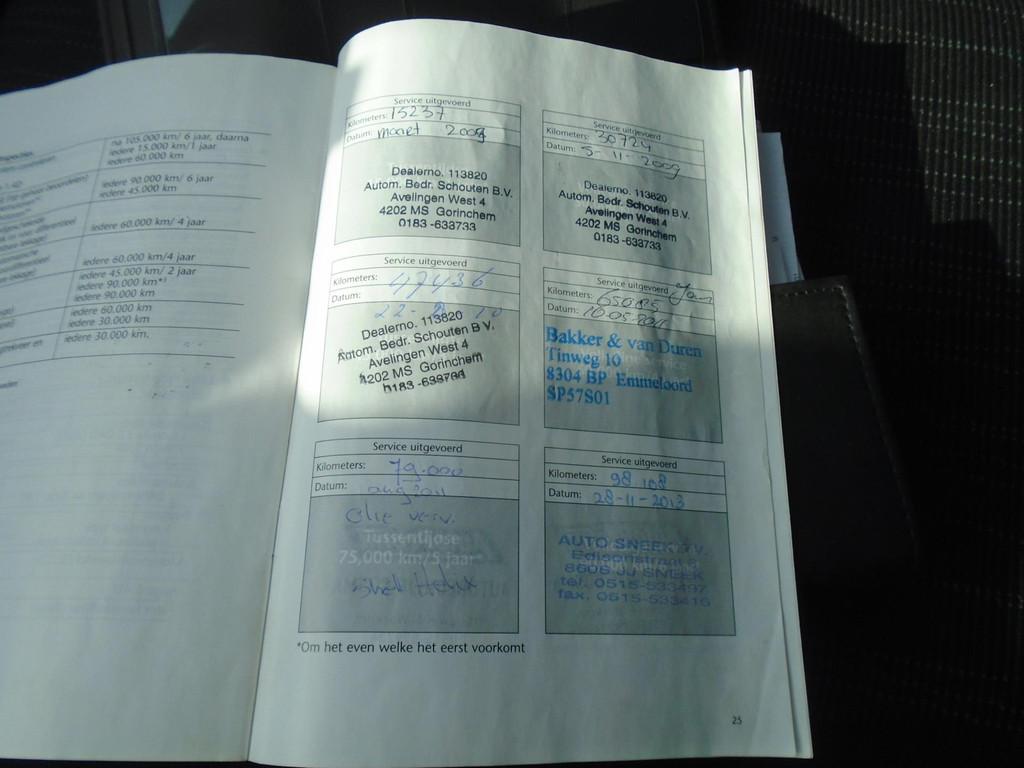 na 105.000 km/ 6 jaar, daarna
iedere 15.000 km/1 jaar
iedere 60.000 km
iedere 90.000 km/ 6 jaar
iedere 45.000 km
iedere 60.000 km/ 4 jaar
iedere 60.000 km/4 jaar
iedere 45.000 km/ 2 jaar
iedere 90.000 km*
iedere 90.000 km
iedere 60.000 km
iedere 30.000 km
iedere 30.000 km.
Service uitgevoerd
Kilometers: 15237
Datum: maart 2009
Dealerno. 113820
Autom. Bedr. Schouten B.V.
Avelingen West 4
4202 MS Gorinchem
0183 -633733
Service uitgevoerd
Kilometers: 30724
Datum: 5-11-2009
Dealerno. 113820
Autom. Bedr. Schouten B.V.
Avelingen West 4
4202 MS Gorinchem
0183 -633733
Service uitgevoerd
Kilometers: 47436
Datum:
Dealerno. 113820
Autom. Bedr. Schouten B V.
Avelingen West 4
4202 MS Gorinchem
Service uitgevoerd
Kilometers:
Datum: 10-05-2011
Bakker & van Duren
Tinweg 10
8304 BP Emmeloord
SP57S01
Service uitgevoerd
Kilometers: 79.000
Datum: aug 2011
Olie verv.
Tussentijdse
75,000 km/5 jaar*
Shell Helix
Service uitgevoerd
Kilometers: 98 108
Datum: 28-11-2013
AUTO SNEEK B.V.
8606 JU SNEEK
tel. 0515-533497
fax. 0515-533416
*Om het even welke het eerst voorkomt
25